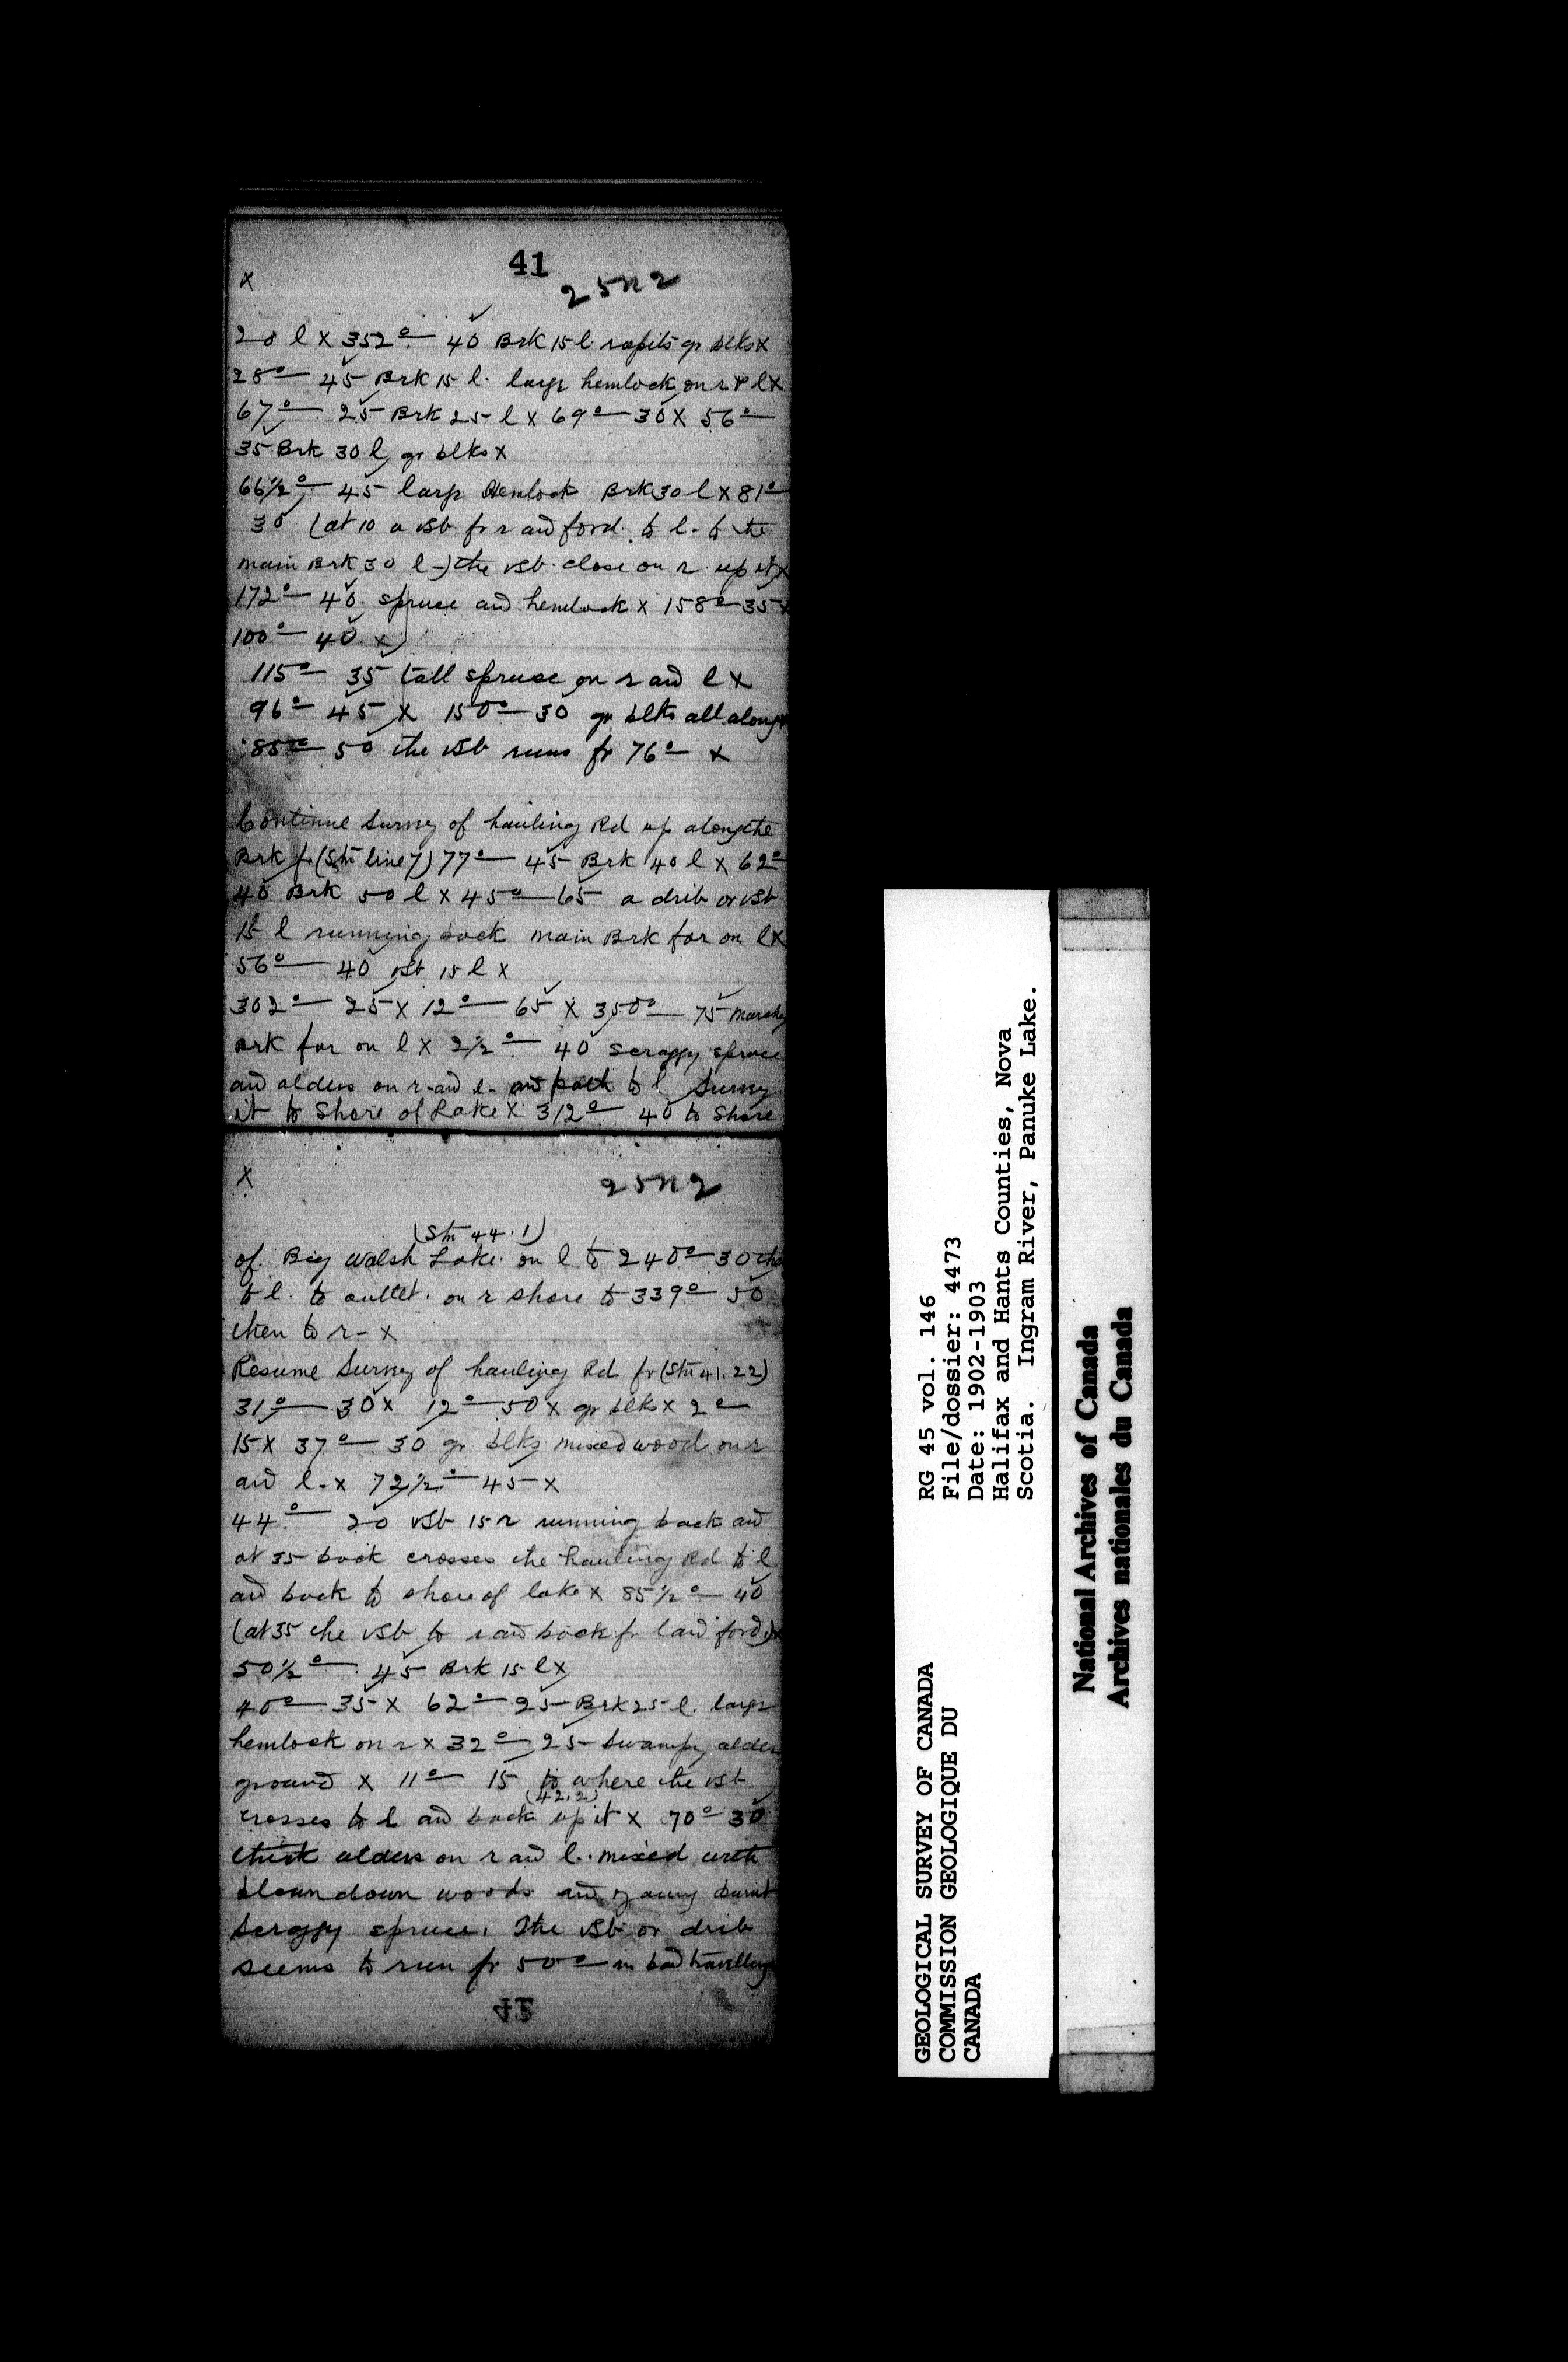 41
x 25n2
20 l x 352° — 40 Brk 15 l rapits gr blks x
28° — 45 Brk 15 l. large hemlock on r & l x
67° — 25 Brk 25 l x 69° — 30 x 56° —
35 Brk 30 l gr blks x
66½° — 45 large Hemlock Brk 30 l x 81° —
30 (at 10 a vsb fr r and ford. to l. to the
main Brk 30 l-) the vsb. close on r up it x
172° — 40 spruce and hemlock x 158° — 35 x
100° — 40 x
115° — 35 tall spruce on r and l x
96° — 45 x 150° — 30 gr blks all along x
85° — 50 the vsb runs fr 76° — x
Continue Survey of hauling Rd up along the
Brk fr (Stn line 7) 77° — 45 Brk 40 l x 62° —
40 Brk 50 l x 45° — 65 a drib or vsb
15 l running back main Brk far on l x
56° — 40 vsb 15 l x
302° — 25 x 12° — 65 x 350° — 75 marshy
Brk far on l x 2½° — 40 scraggy spruce
and alders on r and l- and path to l Survey
it to Shore of Lake x 312° — 40 to Shore
x 25n2
(Stn 44.1)
of Big Walsh Lake. on l to 240° — 30 then
to l. to outlet. on r shore to 339° — 50
then to r- x
Resume Survey of hauling Rd fr (Stn 41.22)
31° — 30 x 12° — 50 x gr blks x 2° —
15 x 37° — 30 gr blks mixed woods on r
and l. x 72½° — 45 x
44° — 20 vsb 15 r running back and
at 35 back crosses the hauling Rd to l
and back to shore of lake x 85½° — 40
(at 35 the vsb to r and back fr l and ford) x
50½° — 45 Brk 15 l x
40° — 35 x 62° — 25 Brk 25 l. large
hemlock on r x 32° — 25 Swampy alder
ground x 11° — 15 to where the vsb
(42.2)
crosses to l and back up it x 70° — 30
thick alders on r and l. mixed with
blown down woods and young burnt
scraggy spruce. The vsb or drib
seems to run fr 50° — in bad travelling
GEOLOGICAL SURVEY OF CANADA
COMMISSION GEOLOGIQUE DU
CANADA
RG 45 vol. 146
File/dossier: 4473
Date: 1902-1903
Halifax and Hants Counties, Nova
Scotia. Ingram River, Panuke Lake.
National Archives of Canada
Archives nationales du Canada